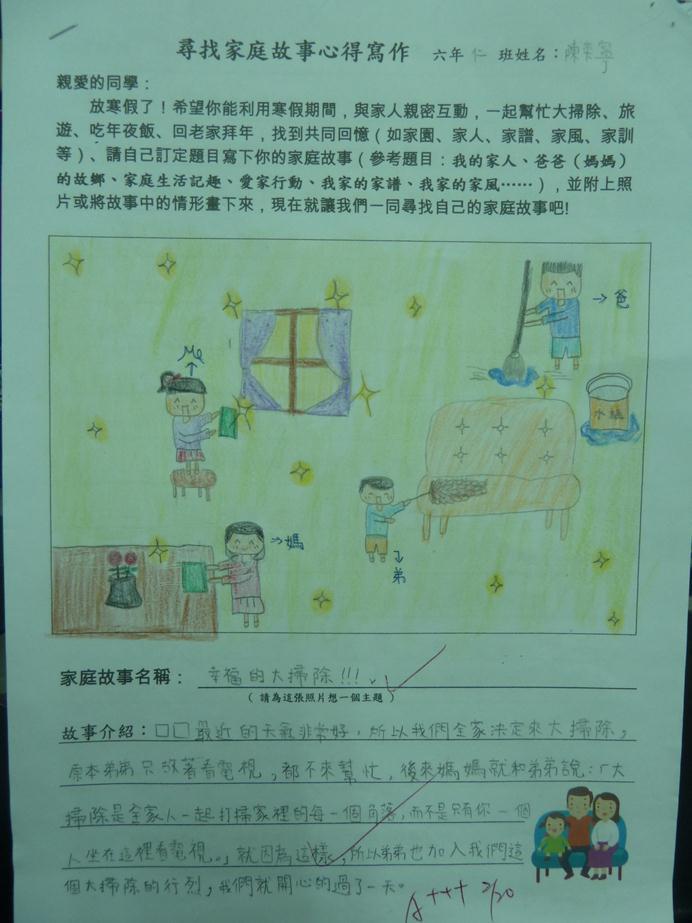 尋找家庭故事心得寫作 六年仁班姓名：陳
親愛的同學：
放寒假了！希望你能利用寒假期間，與家人親密互動，一起幫忙大掃除、旅
遊、吃年夜飯、回老家拜年，找到共同回憶（如家園、家人、家譜、家風、家訓
等）、請自己訂定題目寫下你的家庭故事（參考題目：我的家人、爸爸（媽媽）
的故鄉、家庭生活記趣、愛家行動、我家的家譜、我家的家風……），並附上照
片或將故事中的情形畫下來，現在就讓我們一同尋找自己的家庭故事吧!
→爸
Me
水桶
→媽
弟
家庭故事名稱：幸福的大掃除!!!
（請為這張照片想一個主題）
故事介紹：□□最近的天氣非常好，所以我們全家決定來大掃除，
原本弟弟只顧著看電視，都不來幫忙，後來媽媽就和弟弟說：「大
掃除是全家人一起打掃家裡的每一個角落，而不是只有你一個
人坐在這裡看電視。」就因為這樣，所以弟弟也加入我們這
個大掃除的行列，我們就開心的過了一天。
A+++ 2/20